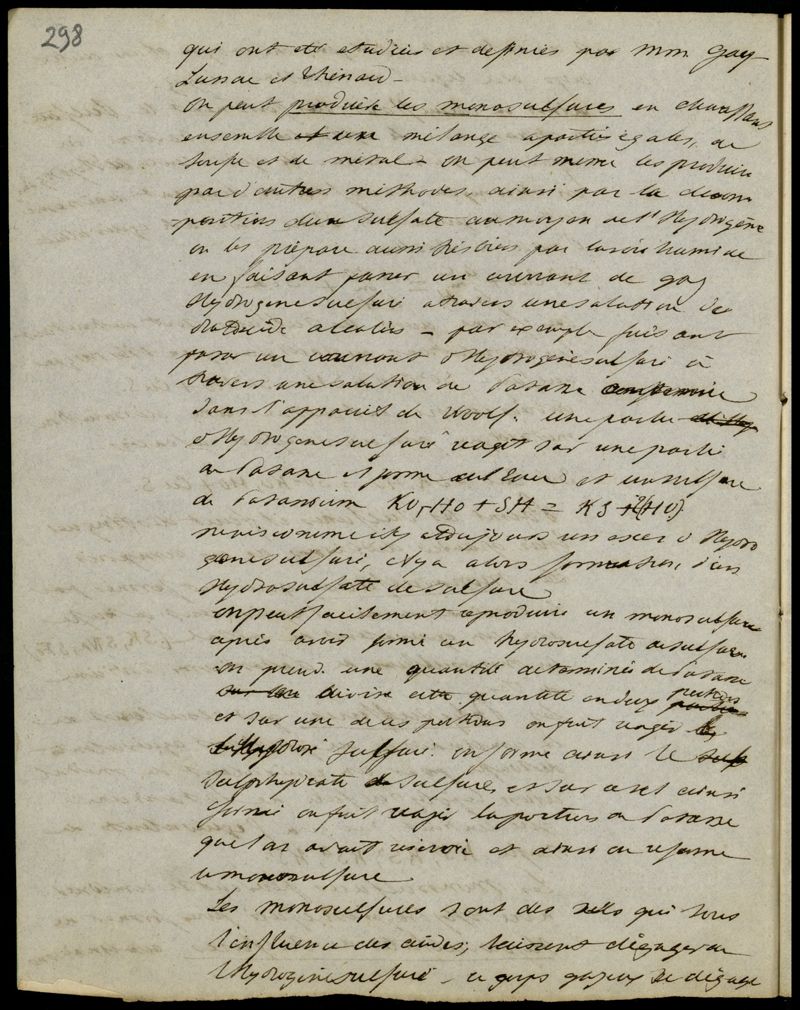 298
qui ont été étudiés et definies par mm Gay
Lussac et Thénard -
on peut produire les monosulfures en chauffant
ensemble et une mélange aparties égales, de
soufre et de métal - on peut meme les produire
par d'autres méthodes, ainsi par la decom
-position d'un sulfate aumoyen de l'Hydrogène
on les prépare aussi tres bien par lavoie humide
en faisant passer un courant de gaz
Hydrogène sulfuré atravers une solution de
alcalis - par exemple faisant
passer un courant d'Hydrogène sulfuré à
travers une solution de Potasse contenue
dans l'appareil de Woolf. une partie
d'Hydrogène sulfuré réagit sur une partie
de Potasse et forme de l'eau et un sulfure
de Potassium KO,HO + SH = KS + 2(HO)
mais comme il y a toujours un excès d'Hydro
gène sulfuré, il y a alors formation d'un
Hydrosulfate de sulfure
on peut facilement reproduire un monosulfure
après avoir formé un hydrosulfate de sulfure
on prend une quantité determinée de Potasse
sur une divise cette quantité en deux portions parties
et sur une de ces portions on fait réagir
sulfuré. on forme ainsi le
sulphydrate de sulfure, et sur ce sel ainsi
formé on fait réagir la portion de Potasse
que l'on avait réservée et ainsi on reforme
le monosulfure
Les monosulfures sont des sels qui sous
l'influence des acides, laissent dégager de
l'Hydrogène sulfuré - ce corps gazeux se dégage